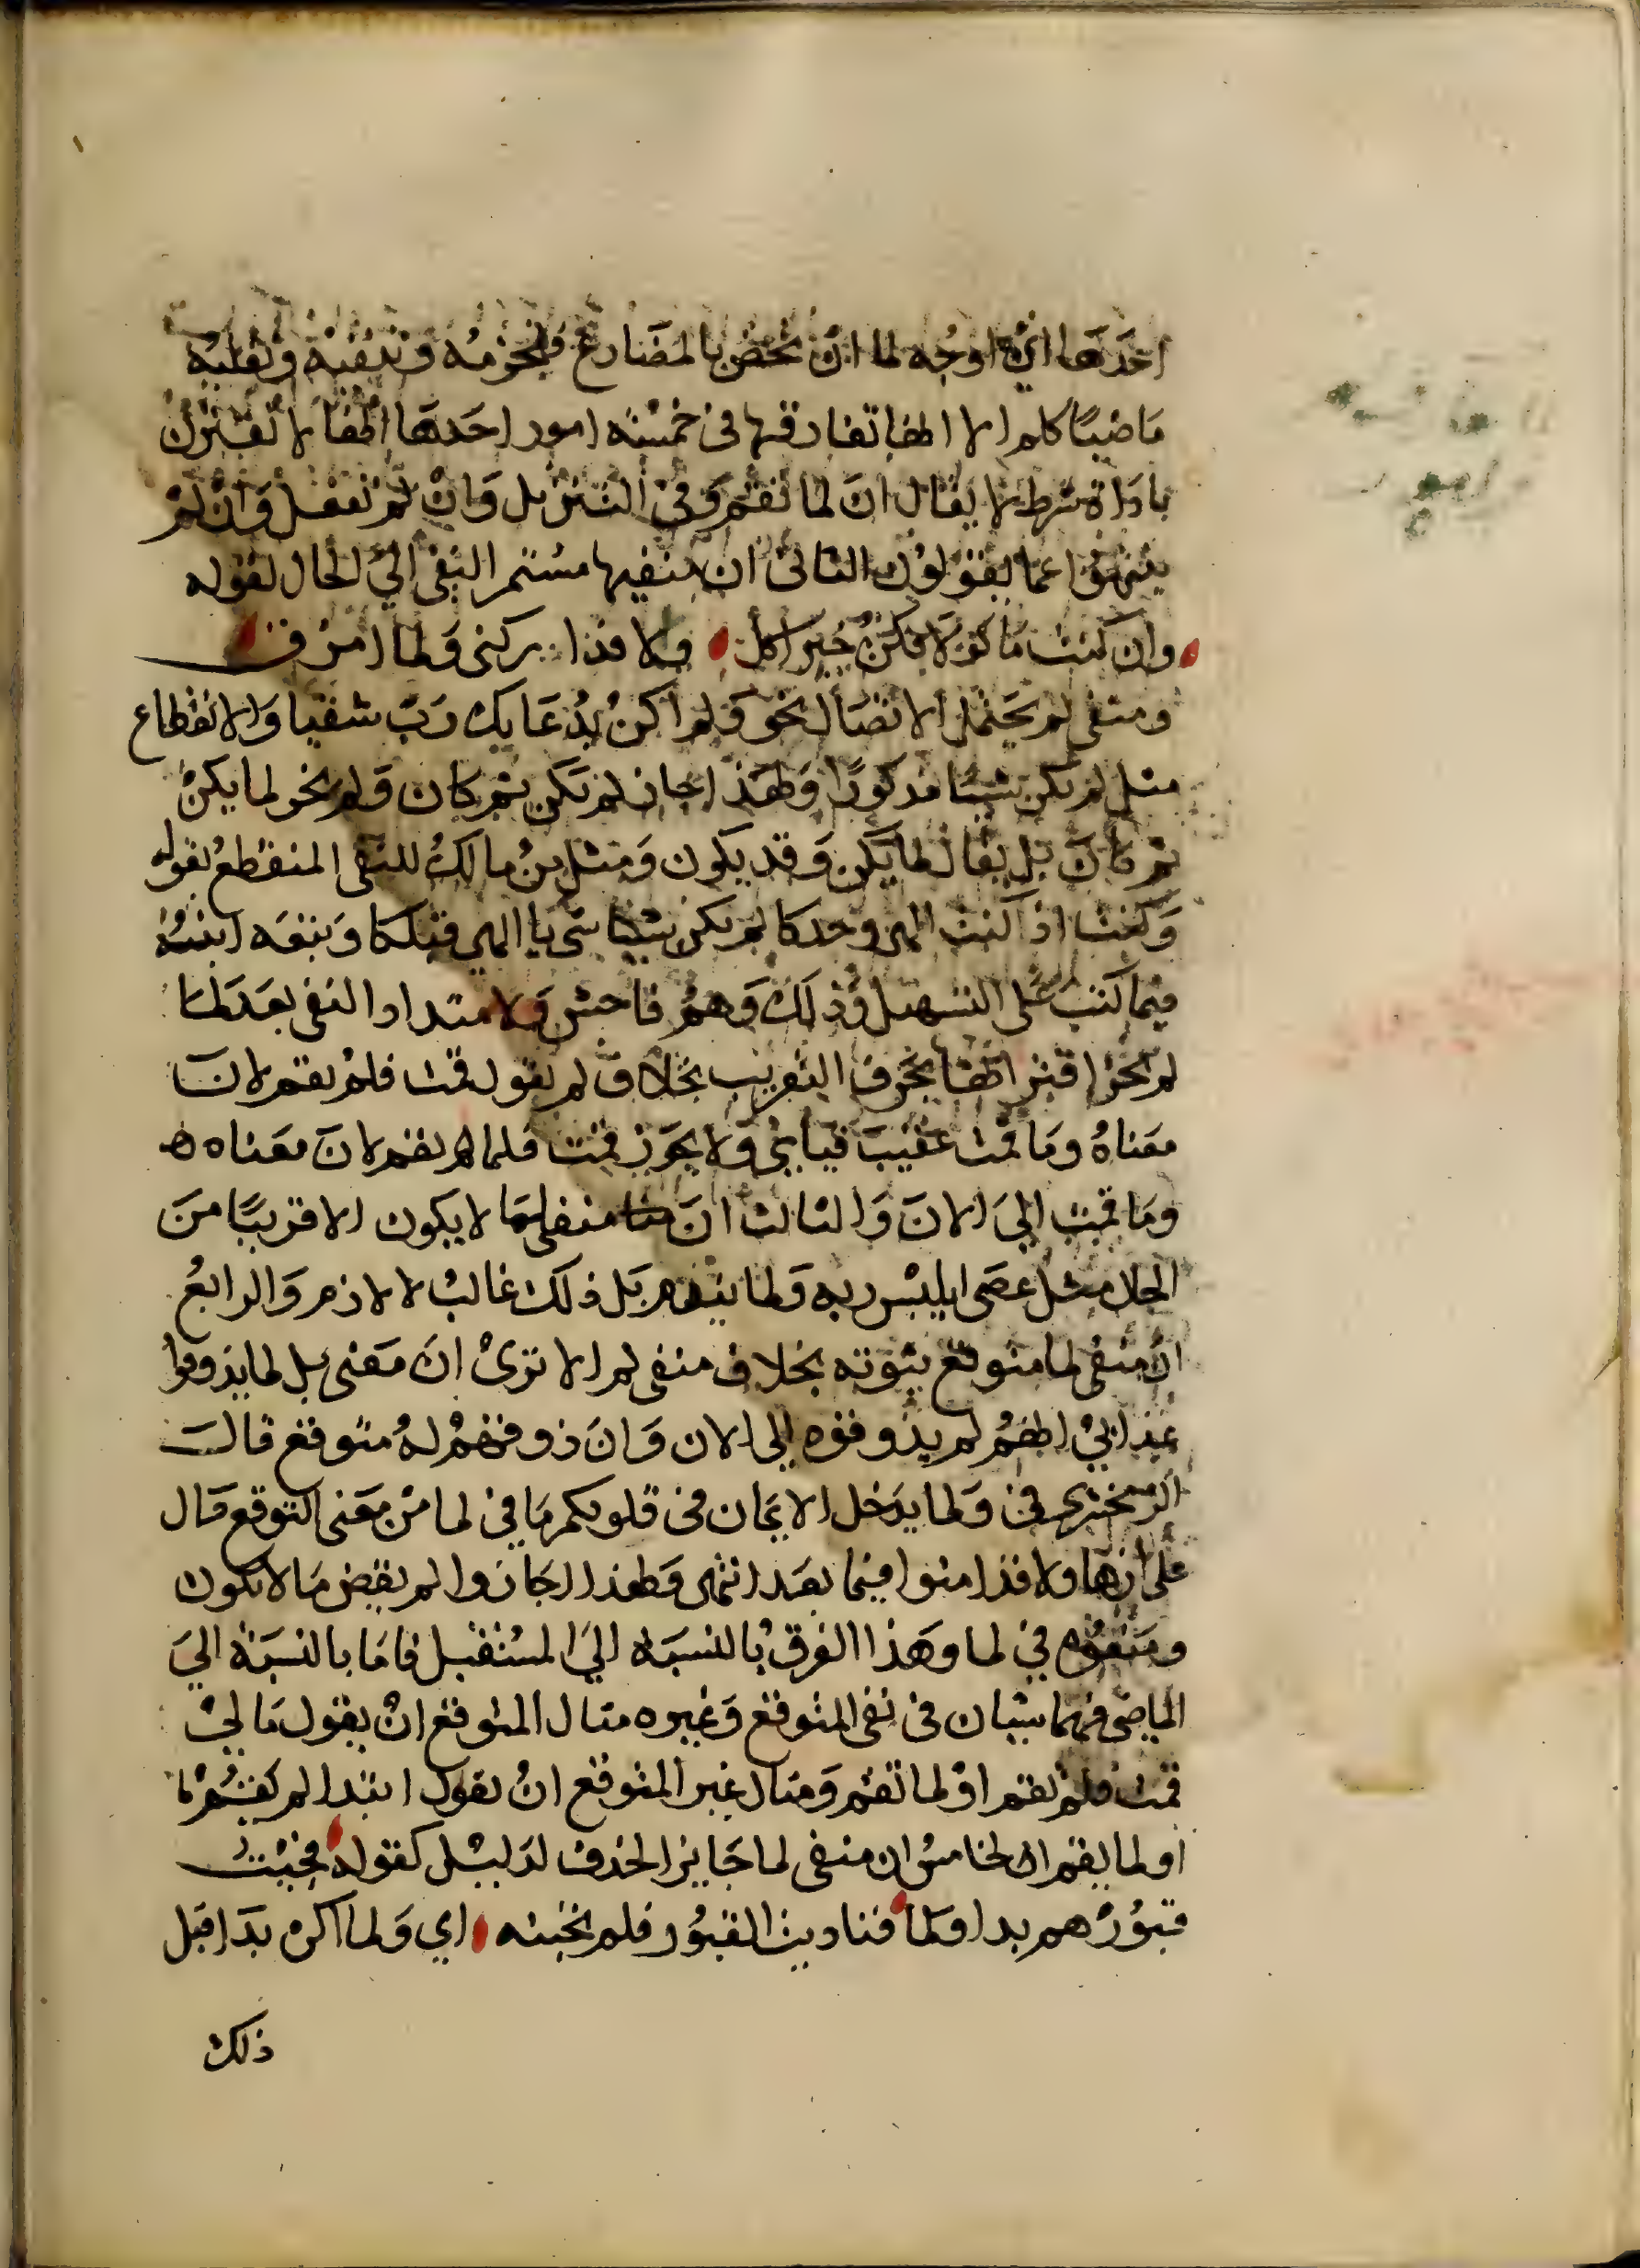 احدها اي اوجه لما ان تختص بالمضارع فتجزمه وتنفيه وتقلبه
ماضيًا كلم الا انها تفارقها في خمسة امور احدها انها لا تقترن
باداة شرط لا يقال ان لما تقم وفي التنزيل وان لم تفعل وان لم
ينتهوا عما يقولون الثاني ان منفيها مستمر النفي الي الحال لقوله
وان كنت ماكولا فكن خير اكل ولا فذا بركني ولما امزق
ومنفي لم يحتمل الاتصال نحو ولم اكن بدعايك رب شقيا والانقطاع
مثل لم يكن شيئا مذكورًا ولهذا جاز لم يكن ثم كان ولم يجز لما يكن
ثم كان بل يقال لما يكن وقد يكون ومثل بن مالك للنفي المنقطع بقوله
وكنت اذ كنت الهي وحدكا لم يكن شيئا شي يا الهي قبلكا وتبعه ابنه
فيما كتب على التسهيل وذلك وهم فاحش ولامتداد النفي بعد لما
لم يجز اقترانها بحرف التعقيب بخلاف لم يقول قمت فلم يقم لان
معناه وما قمت عقيب قيامي ولا يجوز قمت فلما لم يقم لان معناه
وما قمت الي الان والثالث ان منفي لما لا يكون الا قريبًا من
الحال مثل عصى ابليس ربه ولما يندم بل ذلك غالب لا لازم والرابع
ان منفي لما متوقع ثبوته بخلاف منفي لم الا ترى ان معنى بل لما يذوقوا
عذابي انهم لم يذوقوه الي الان وان ذوقهم له متوقع قال
الزمخشري في ولما يدخل الايمان في قلوبكم ما في لما من معنى التوقع دال
على ان هاولا قد امنوا فيما بعد انتهى ولهذا اجازوا لم يقض ما لا يكون
ومنعوه في لما وهذا الفرق بالنسبة الي المستقبل فاما بالنسبة الي
الماضي فهما سيان في نفي المتوقع وغيره مثال المتوقع ان يقول ما لي
قمت فلم تقم او لما تقم ومثال غير المتوقع ان يقول ابتدا لم يقم
او لما يقم الخامس ان منفي لما جايز الحذف لدليل كقوله فجيت
قبورهم بدا ولما فناديت القبور فلم يجبنه اي ولما اكن بدا قبل
ذلك